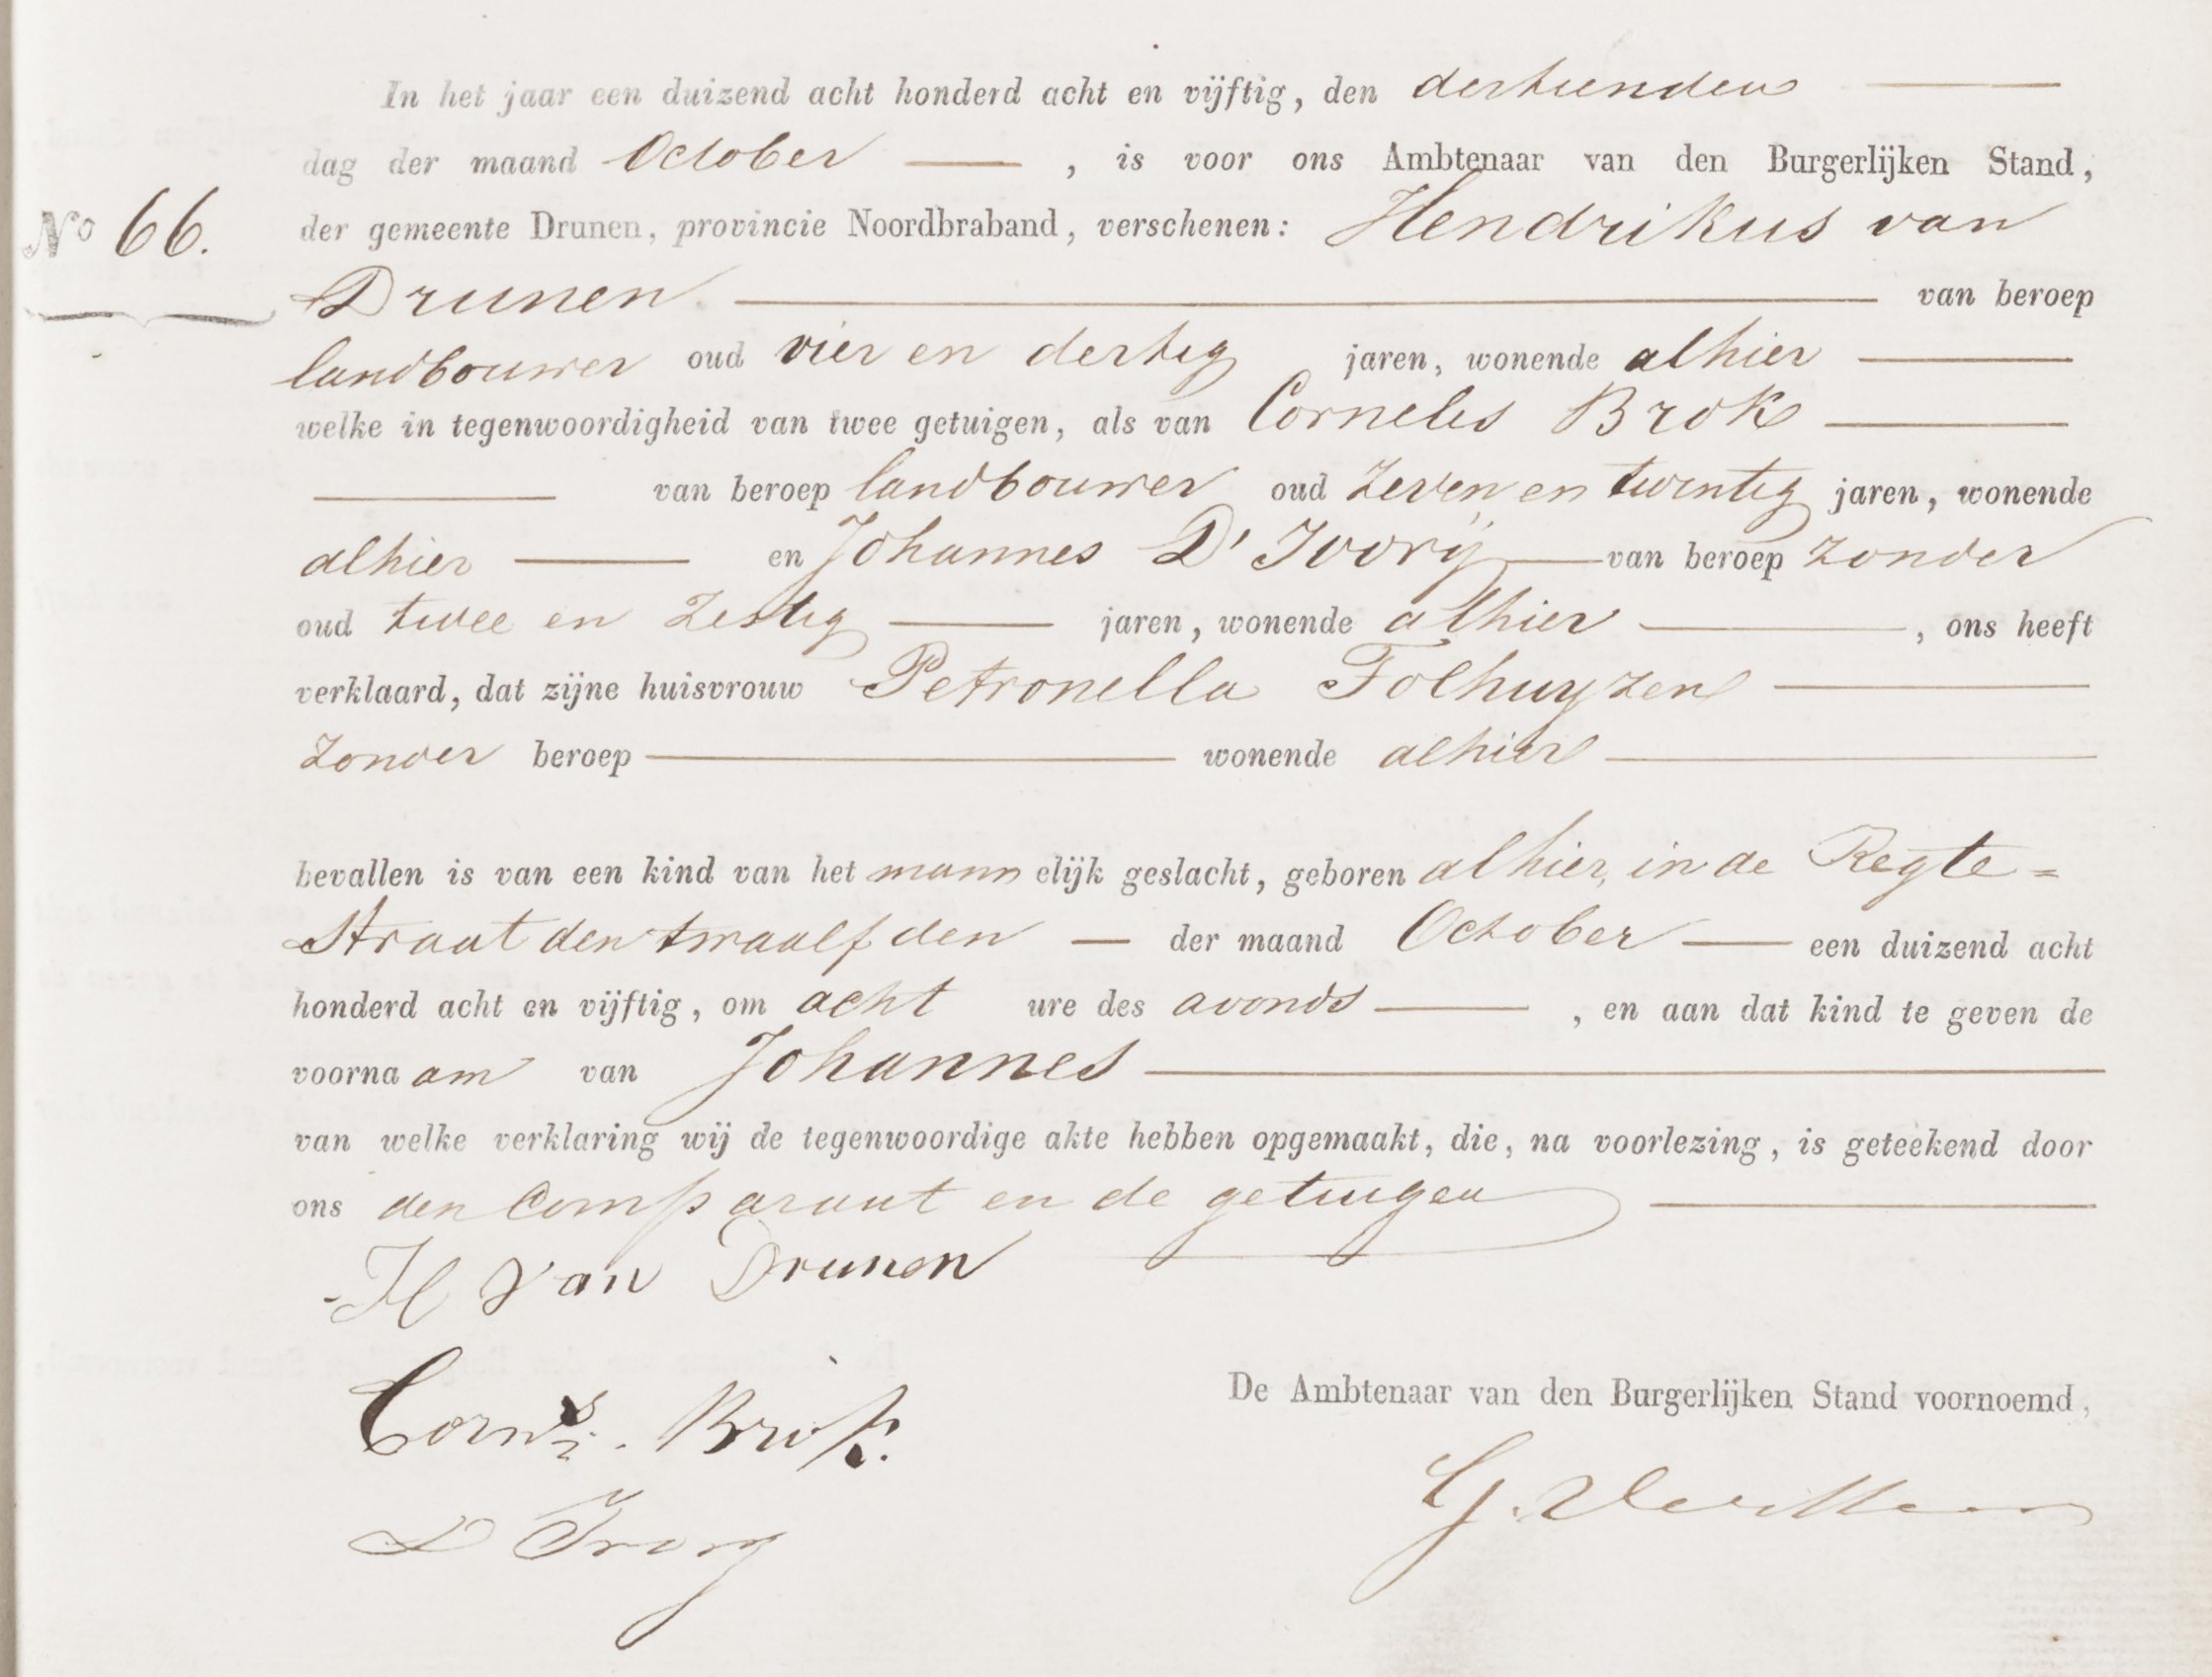 In het jaar een duizend acht honderd acht en vijftig, den dertienden
dag der maand October, is voor ons Ambtenaar van den Burgerlijken Stand,
No 66. der gemeente Drunen, provincie Noordbraband, verschenen: Hendrikus van
Drunen van beroep
landbouwer oud vier en dertig jaren, wonende alhier
welke in tegenwoordigheid van twee getuigen, als van Cornelis Brok
van beroep landbouwer oud zeven en twintig jaren, wonende
alhier en Johannes D' Ivorij van beroep zonder
oud twee en zestig jaren, wonende alhier, ons heeft
verklaard, dat zijne huisvrouw Petronella Folhuyzen
zonder beroep wonende alhier
bevallen is van een kind van het mannelijk geslacht, geboren alhier, in de Regte=
Straat den twaalfden der maand October een duizend acht
honderd acht en vijftig, om acht ure des avonds, en aan dat kind te geven de
voornaam van Johannes
van welke verklaring wij de tegenwoordige akte hebben opgemaakt, die, na voorlezing, is geteekend door
ons den Comparant en de getuigen
H van Drunen
Corns. Brok.
De Ambtenaar van den Burgerlijken Stand voornoemd,
D Ivory
G.